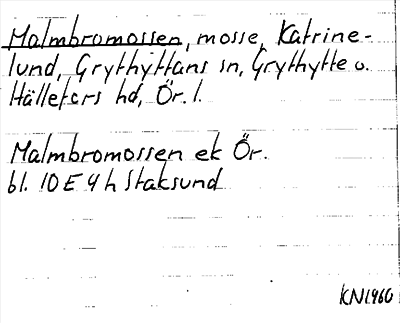 Malmbromossen, mosse, Katrine-
lund, Grythyttans sn, Grythytte o.
Hällefors hd, Ör. l.
Malmbromossen ek Ör.
bl. 10 E 4 h Staksund
KN1960